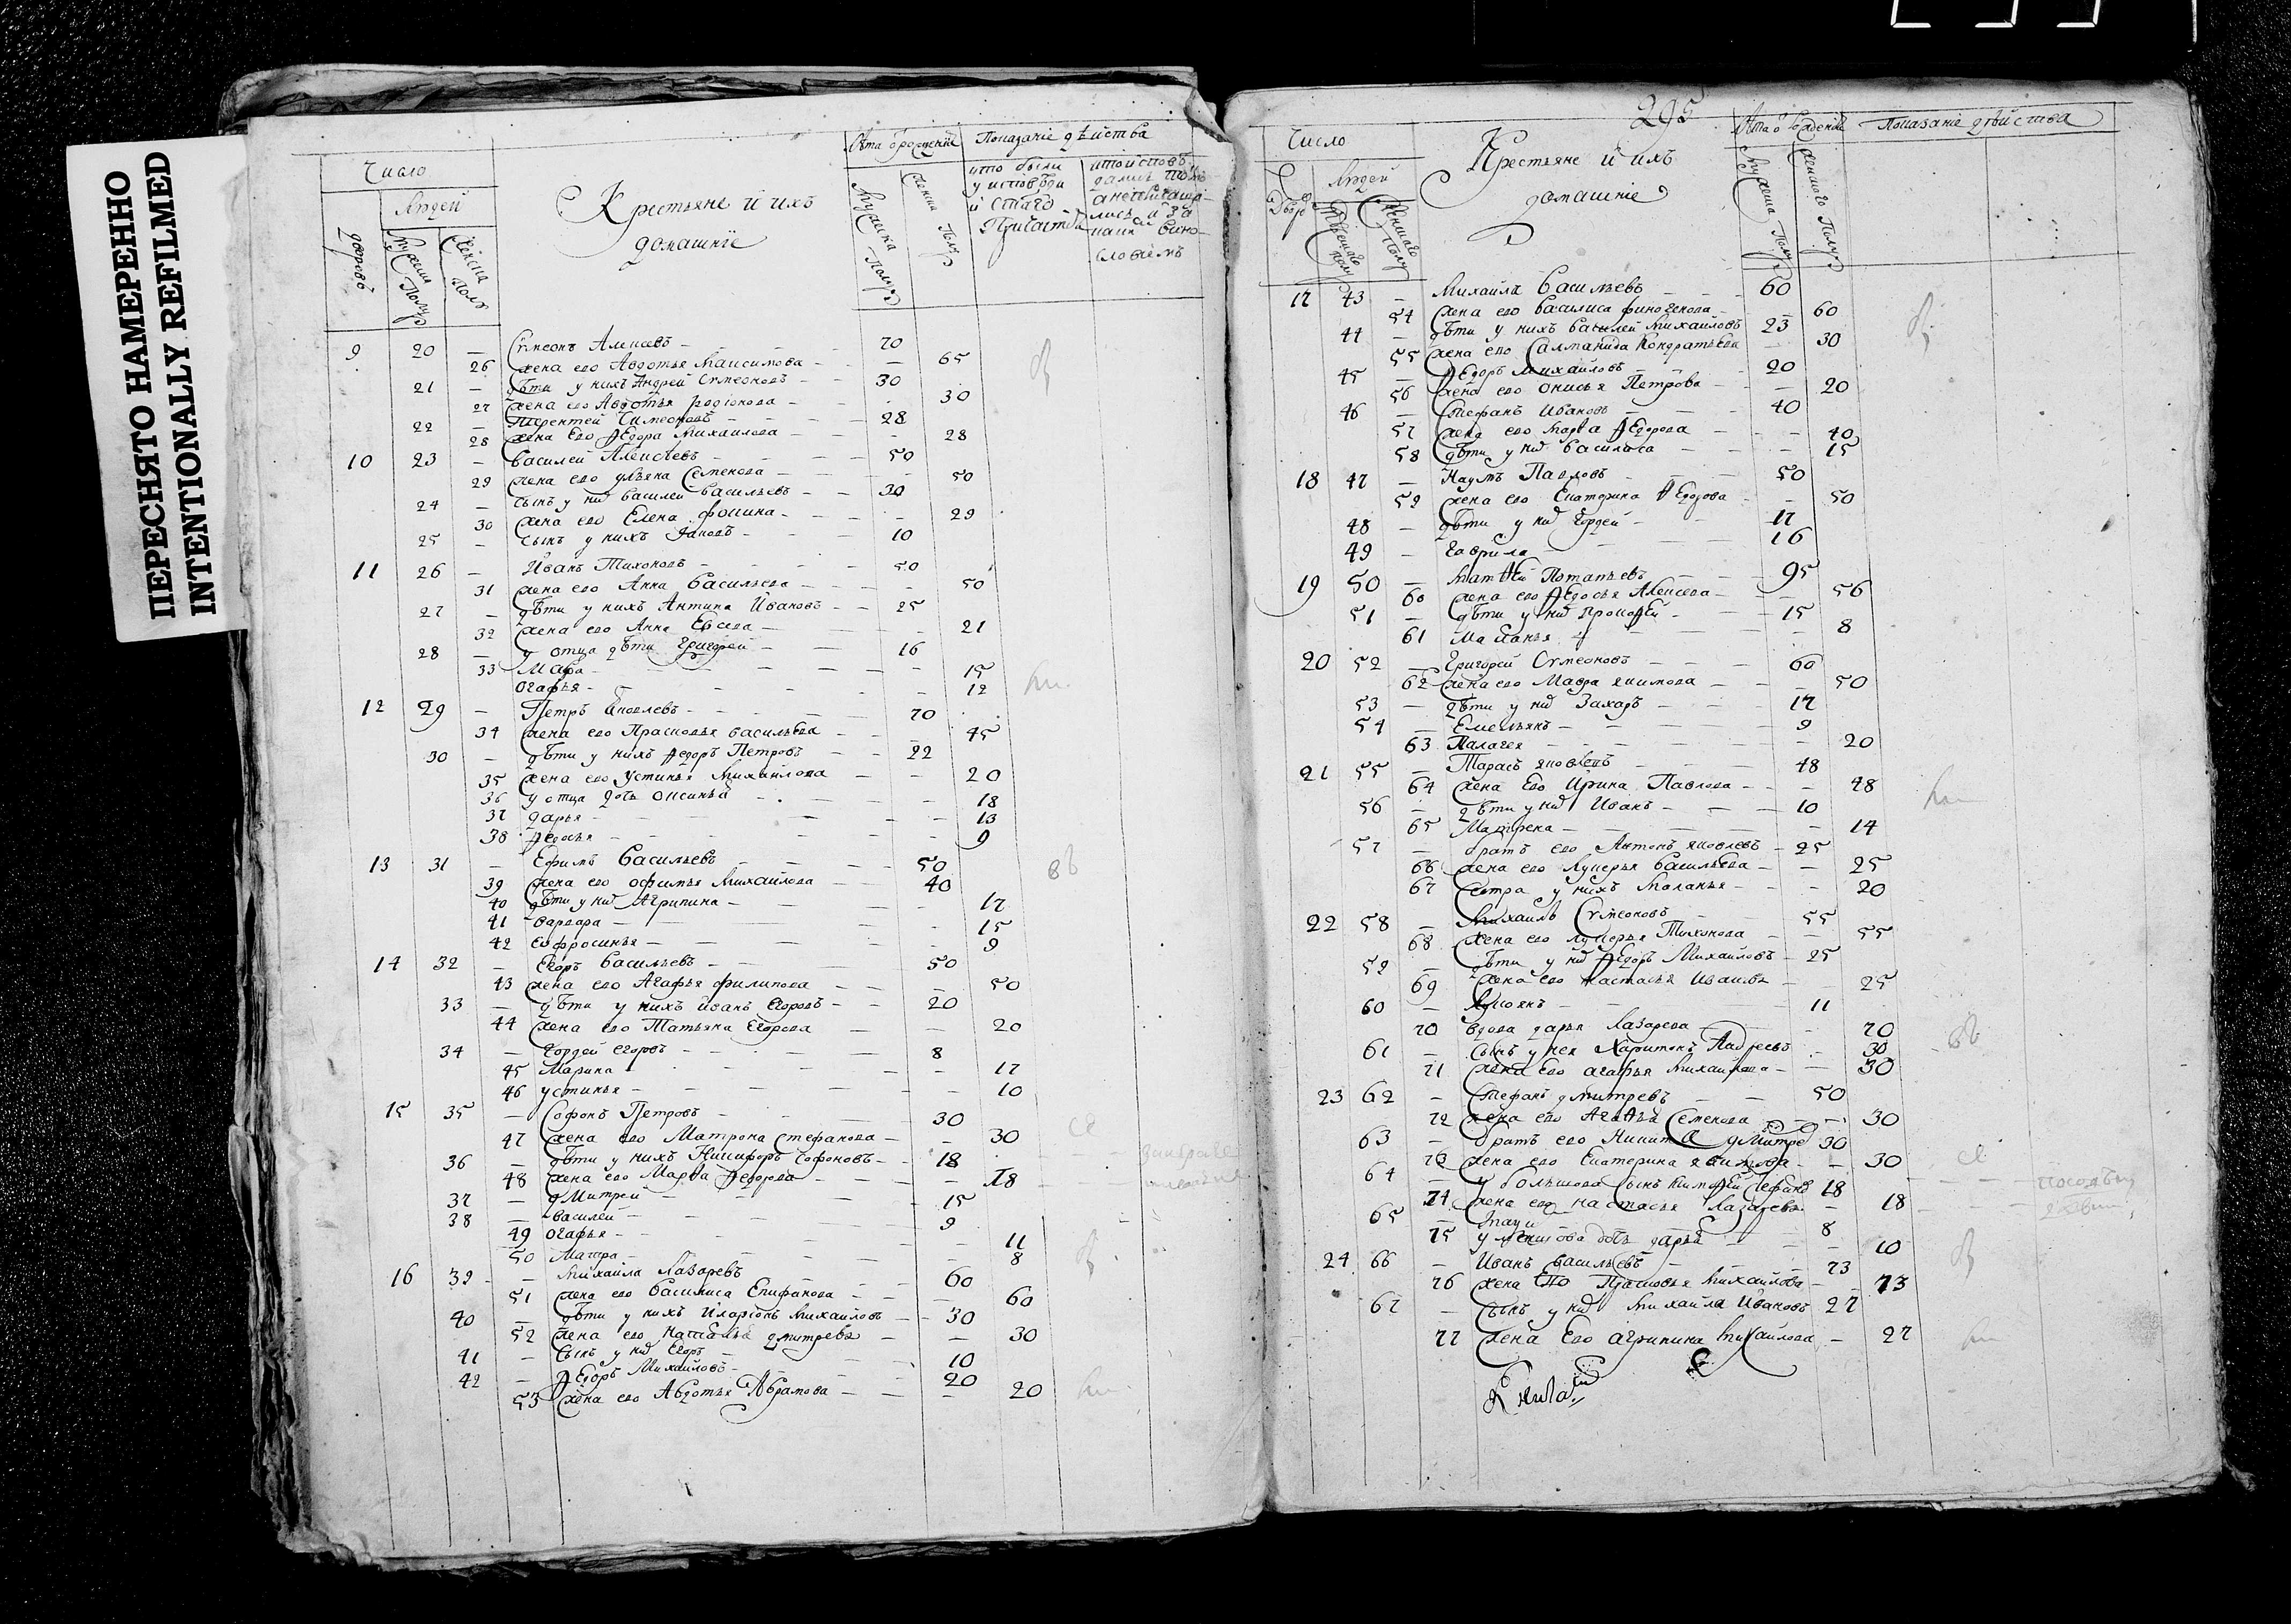 ПЕРЕСНЯТО НАМЕРЕННО
INTENTIONALLY REFILMED
Число
Людей
дворовъ
Крестьяне и ихъ
домашніе
Лѣта о рожденіи
Мужеска полу
Показаніе дѣйства
кто были
у исповѣди
и с҃таго
Причастія
9 20 — Сѵмеонъ 70
26 жена его Авдотья Максимова — 65
21 — дѣти у нихъ Андрей Сѵмеоновъ 30
27 жена его Авдотья родіонова 30
22 — Терентей Симеоновъ 28
28 жена Его Ѳедора Михаилова 28
10 23 — Василей Алексѣевъ 50
29 жена его ульяна Семенова 50
24 — сынъ у ни Василей Васильевъ 30
30 жена его Елена фокина 29
25 — сынъ у нихъ Іаковъ 10
11 26 — Иванъ Тихоновъ 50
31 жена его Анна Васильева 50
27 — дѣти у нихъ Антипа Ивановъ 25
32 жена его Анна Евсева 21
28 — у отца дѣти Григорей 16
33 Мавра 15
огафья 12
12 29 — Петръ Яковлевъ 70
34 жена его Прасковья васильева 45
30 — дѣти у нихъ Ѳедоръ Петровъ 22
35 жена его Устинья Михаилова 20
36 у отца дочь Оксинья 18
37 дарья 13
38 Ѳедосья 9
13 31 — Ефимъ Васильевъ 50
39 жена его офимья Михаилова 40
40 дѣти у ни Агрипина 17
41 варвара 15
42 Еофросинья 9
14 32 — Егоръ Васильевъ 50
43 жена его Агафья филипова 50
33 — дѣти у нихъ иванъ Егоровъ 20
44 жена его Татьяна Егорова 20
34 — Гордей егоровъ 8
45 Марина 17
46 устинья 10
15 35 — Софонъ Петровъ 30
47 жена его Матрона Стефанова 30
36 — дѣти у нихъ Никифоръ Софоновъ 18
48 жена его Марѳа Ѳедорова 18
37 — дмитрей 15
38 — василей 9
49 огафья 11
50 8
16 39 — Михаила Лазаревъ 60
51 жена его Василиса Епифанова 60
40 — дѣти у нихъ Иларіонъ Михаиловъ 30
52 жена его Наталья дмитрева 30
41 — сынъ у ни Егоръ 10
42 — Ѳедоръ Михаиловъ 20
53 жена его Авдотья Абрамова 20
295
Число
Людей
Крестьяне и ихъ
домашніе
Лѣта о рожденіи
Показаніе дѣйства
17 43 — Михайла Васильевъ 60
54 жена его василиса финогенова 60
44 — дѣти у нихъ Василей Михаиловъ 23
55 жена его Саламанида Кондратьева 30
45 Ѳедоръ Михаиловъ 20
56 жена его онисья Петрова 20
46 — Стефанъ Ивановъ 40
57 жена его Марѳа Ѳедорова 40
58 дѣти у ни василиса 15
18 47 — Наумъ Павловъ 50
59 жена его Екатерина Ѳедорова 50
48 — дѣти у ни Гордей 17
49 — Гаврила 16
19 50 — Матѳей Потапьевъ 95
60 жена его Ѳедосья Алексева 56
51 — дѣти у ни Прокоѳей 15
61 Маланья 8
20 52 — Григорей Сѵмеоновъ 60
62 жена его Мавра якимова 50
53 — дѣти у ни Захаръ 17
54 — Емельянъ 9
63 Палагея 20
21 55 — Тарасъ яковлевъ 48
64 жена Его Ирина Павлова 48
56 — дѣти у ни Иванъ 10
65 Матрена 14
57 — братъ его Антонъ яковлевъ 25
66 жена его Лукерья васильева 25
67 сестра у нихъ Маланья 20
22 58 — Михаилъ Сѵмеоновъ 55
68 жена его лукерья Тихонова 55
59 — дѣти у ни Ѳедоръ Михаиловъ 25
69 жена его настасья Иванова 25
60 — 11
70 вдова дарья Лазарева 70
61 — сынъ у нея Харитонъ Андреевъ 30
71 жена его агафья Михаилова 30
23 62 — Стефанъ дмитревъ 50
72 жена его Агаѳья Семенова 30
63 — братъ его Никита дмитре 30
73 жена его Екатерина 30
64 — у большова сынъ Тимоѳей Стефано 18
74 жена его настасья Лазарева 18
65 — 8
75 у меншова дочь дарья 10
24 66 — Иванъ васильевъ 73
76 жена Его Прасковья Михаилова 73
67 — сынъ у ни Михайла Ивановъ 27
77 жена Его агрипина Михаилова 27